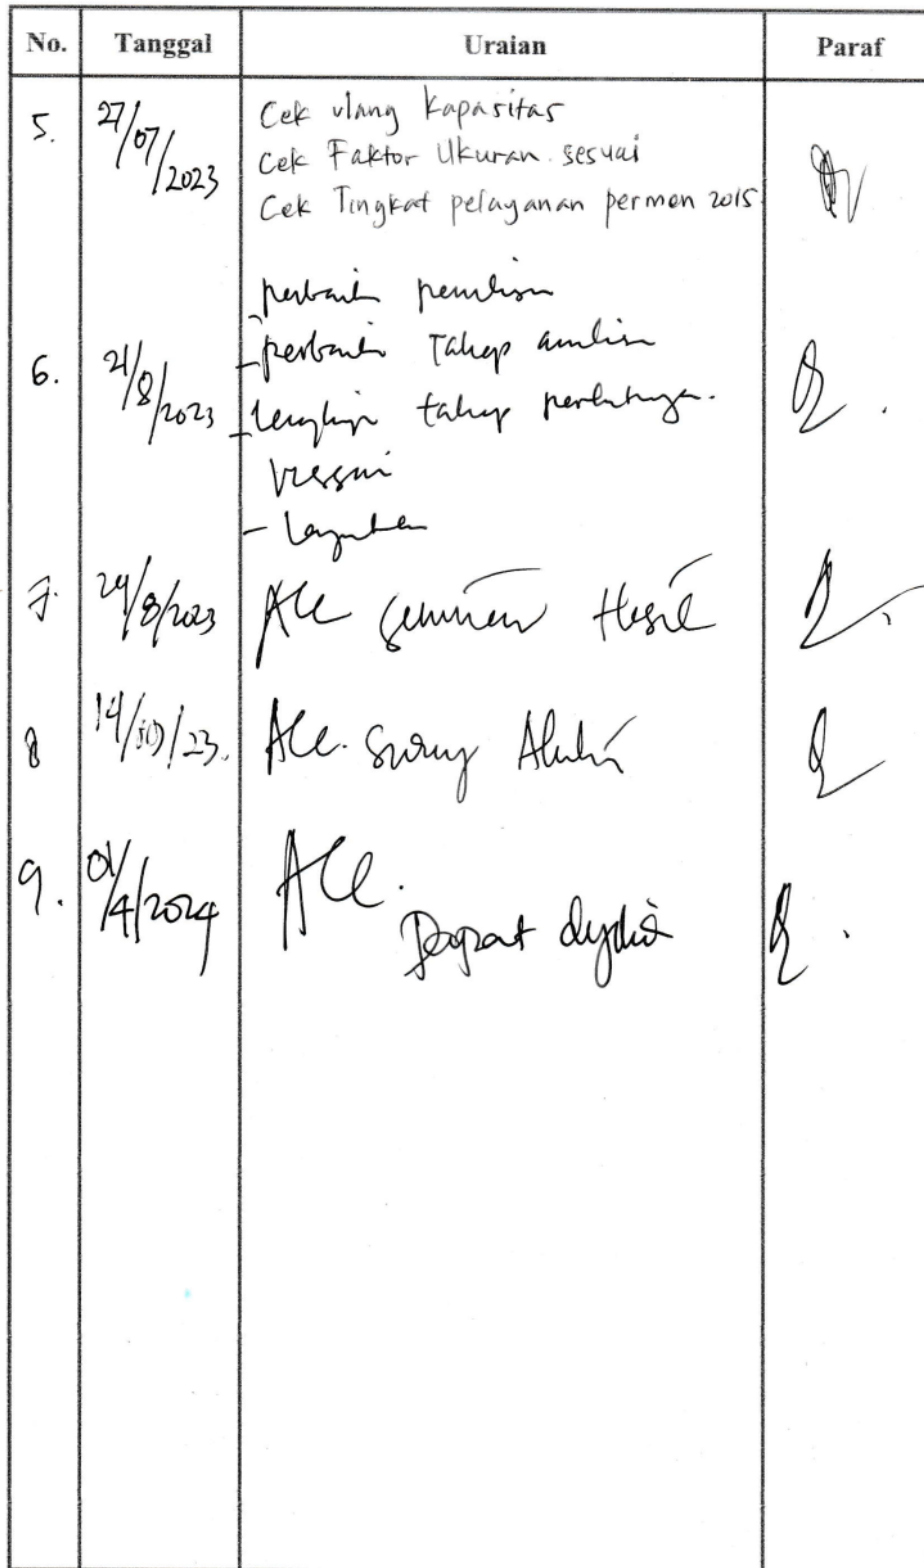 No. Tanggal Uraian Paraf
5. 27/07/2023 Cek ulang kapasitas
Cek Faktor Ukuran sesuai
Cek Tingkat pelayanan permen 2015
perbaiki penulisan
6. 21/8/2023 - perbaiki Tahap analisa
- lengkapi tahap
- 
7. 24/8/2023 Acc seminar Hasil
8 14/10/23. Acc. Sidang Akhir
9. 01/4/2024 Acc.
Dapat dijilid